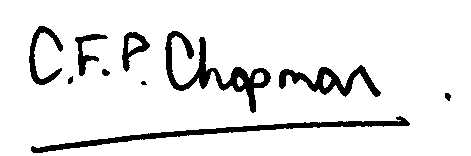 C.F.P. Chapman